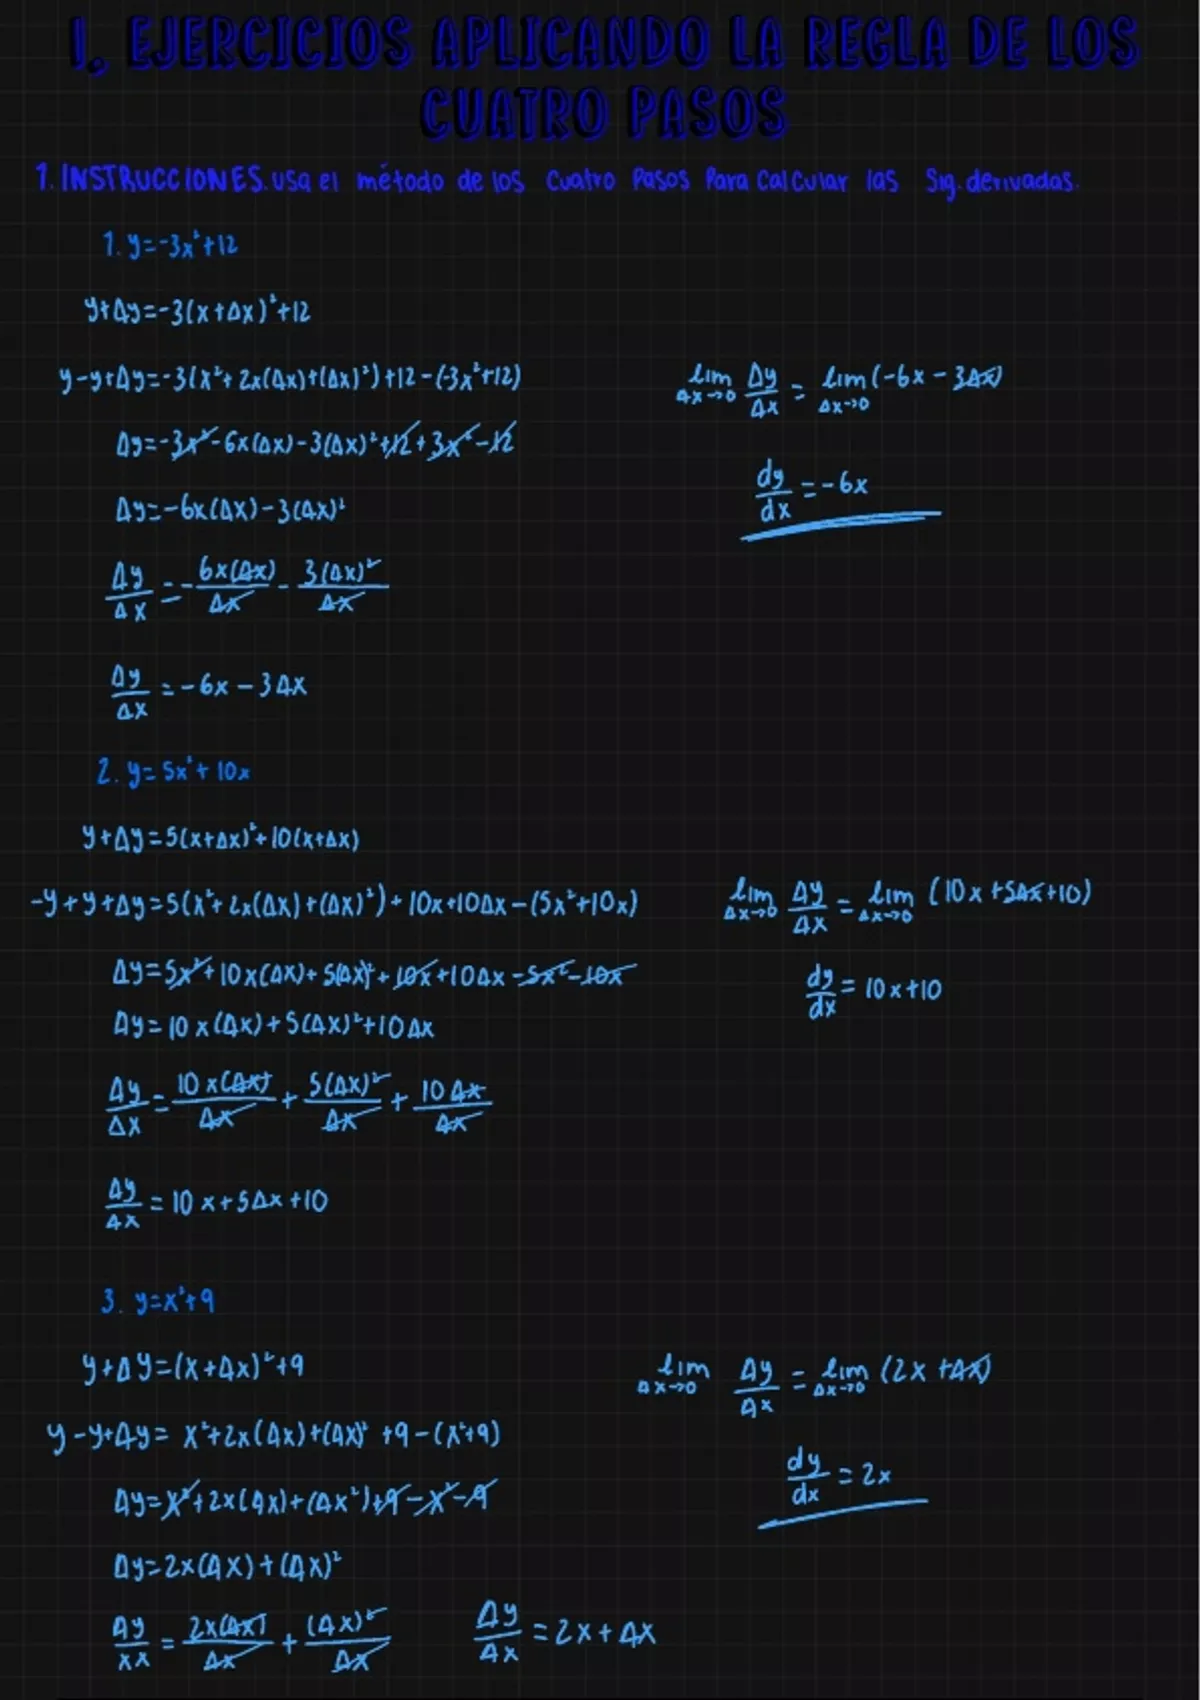 1. EJERCICIOS APLICANDO LA REGLA DE LOS
CUATRO PASOS
1. INSTRUCCIONES. usa el método de los cuatro pasos para calcular las sig. derivadas.
1. y=-3x²+12
y+Δy=-3(x+Δx)²+12
y-y+Δy=-3(x²+2x(Δx)+(Δx)²)+12-(-3x²+12)
Δy=-3x²-6x(Δx)-3(Δx)²+12+3x²-12
Δy=-6x(Δx)-3(Δx)²
Δy/Δx=-6x(Δx)/Δx-3(Δx)²/Δx
Δy/Δx=-6x-3Δx
lim Δx→0 Δy/Δx = lim Δx→0 (-6x-3Δx)
dy/dx=-6x
2. y=5x²+10x
y+Δy=5(x+Δx)²+10(x+Δx)
-y+y+Δy=5(x²+2x(Δx)+(Δx)²)+10x+10Δx-(5x²+10x)
Δy=5x²+10x(Δx)+5(Δx)²+10x+10Δx-5x²-10x
Δy=10x(Δx)+5(Δx)²+10Δx
Δy/Δx=10x(Δx)/Δx+5(Δx)²/Δx+10Δx/Δx
Δy/Δx=10x+5Δx+10
lim Δx→0 Δy/Δx = lim Δx→0 (10x+5Δx+10)
dy/dx=10x+10
3. y=x²+9
y+Δy=(x+Δx)²+9
y-y+Δy=x²+2x(Δx)+(Δx)²+9-(x²+9)
Δy=x²+2x(Δx)+(Δx²)+9-x²-9
Δy=2x(Δx)+(Δx)²
Δy/xx=2x(Δx)/Δx+(Δx)²/Δx
Δy/Δx=2x+Δx
lim Δx→0 Δy/Δx = lim Δx→0 (2x+Δx)
dy/dx=2x